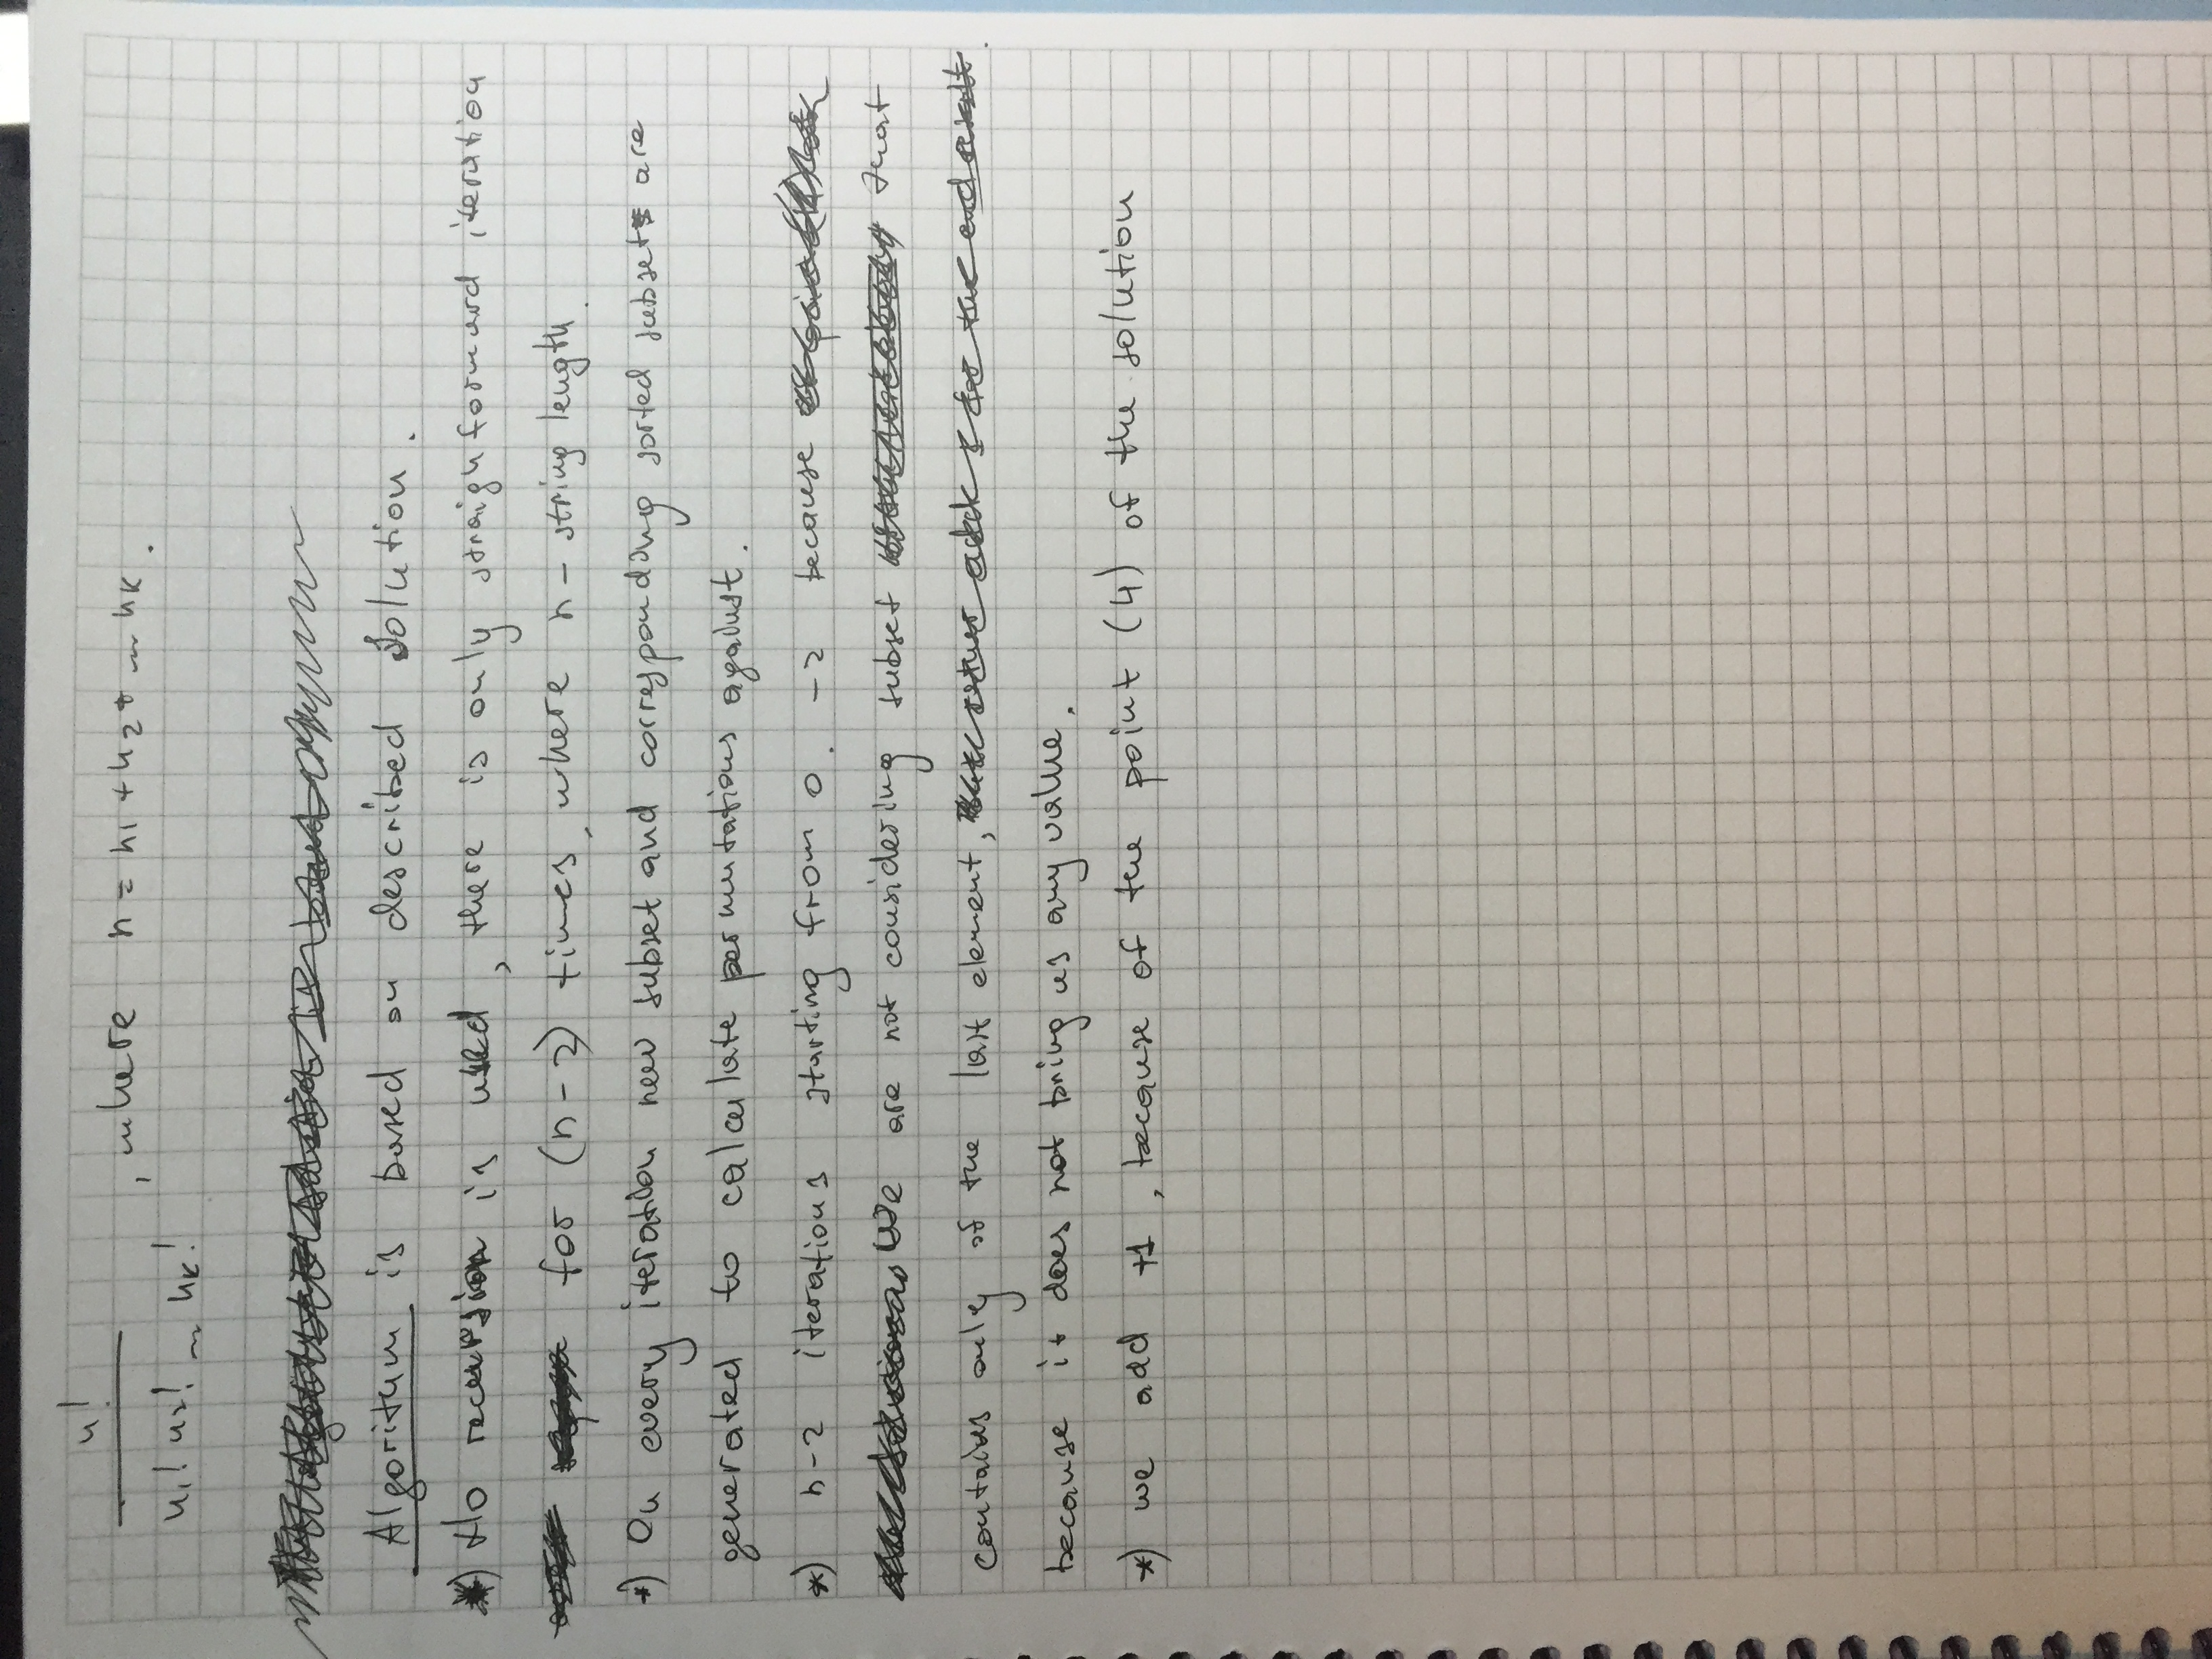 n!
n₁! n₂! ... nₖ!
, where n = n₁ + n₂ + ... nₖ.
Algoritum is based on described solution.
*) No recursion is used, there is only straighforward iteration
for (n-2) times, where n - string length.
*) On every iteration new subset and corresponding sorted subset are
generated to calculate permutations against.
*) n-2 iterations starting from 0. -2 because
We are not considering subset that
contains only of the last element,
because it does not bring us any value.
*) we add +1, because of the point (4) of the solution